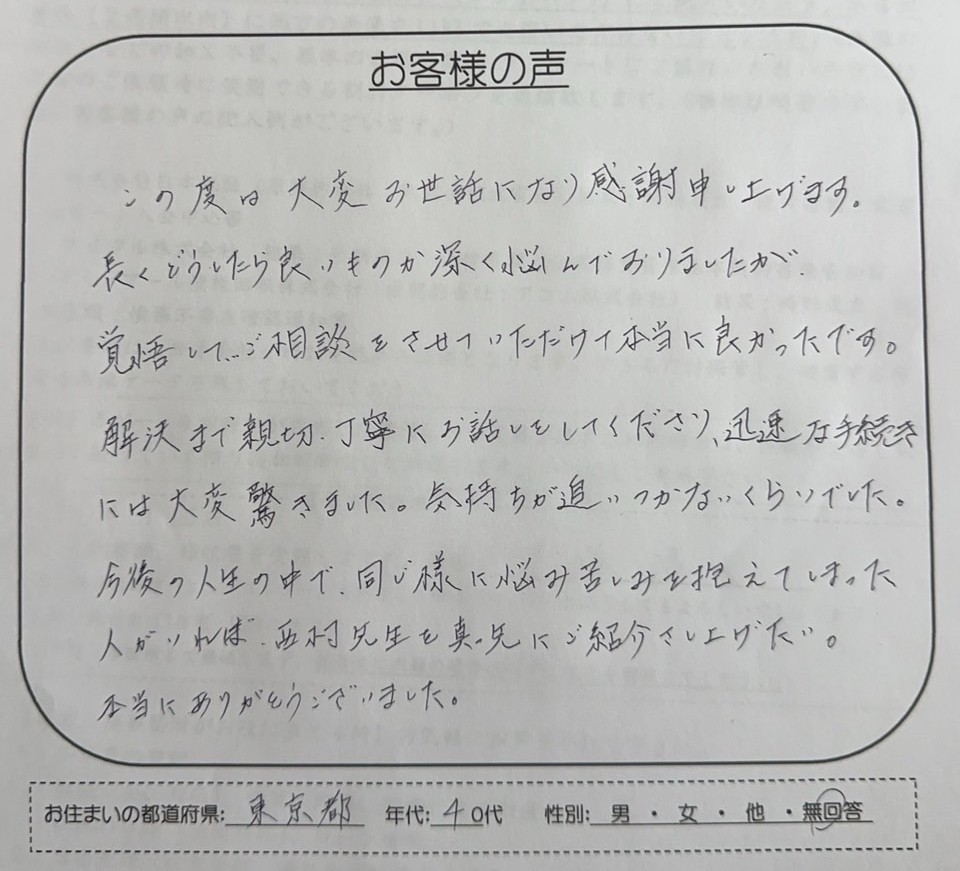 お客様の声
この度は大変お世話になり感謝申し上げます。
長くどうしたら良いものか深く悩んでおりましたが
覚悟して、ご相談をさせていただけて本当に良かったです。
解決まで親切、丁寧にお話しをしてくださり、迅速な手続き
には大変驚きました。気持ちが追いつかないくらいでした。
今後の人生の中で、同じ様に悩み苦しみを抱えてしまった
人がいれば、西村先生を真っ先にご紹介さし上げたい。
本当にありがとうございました。
お住まいの都道府県: 東京都 年代: 40代 性別: 男 ・ 女 ・ 他 ・無回答